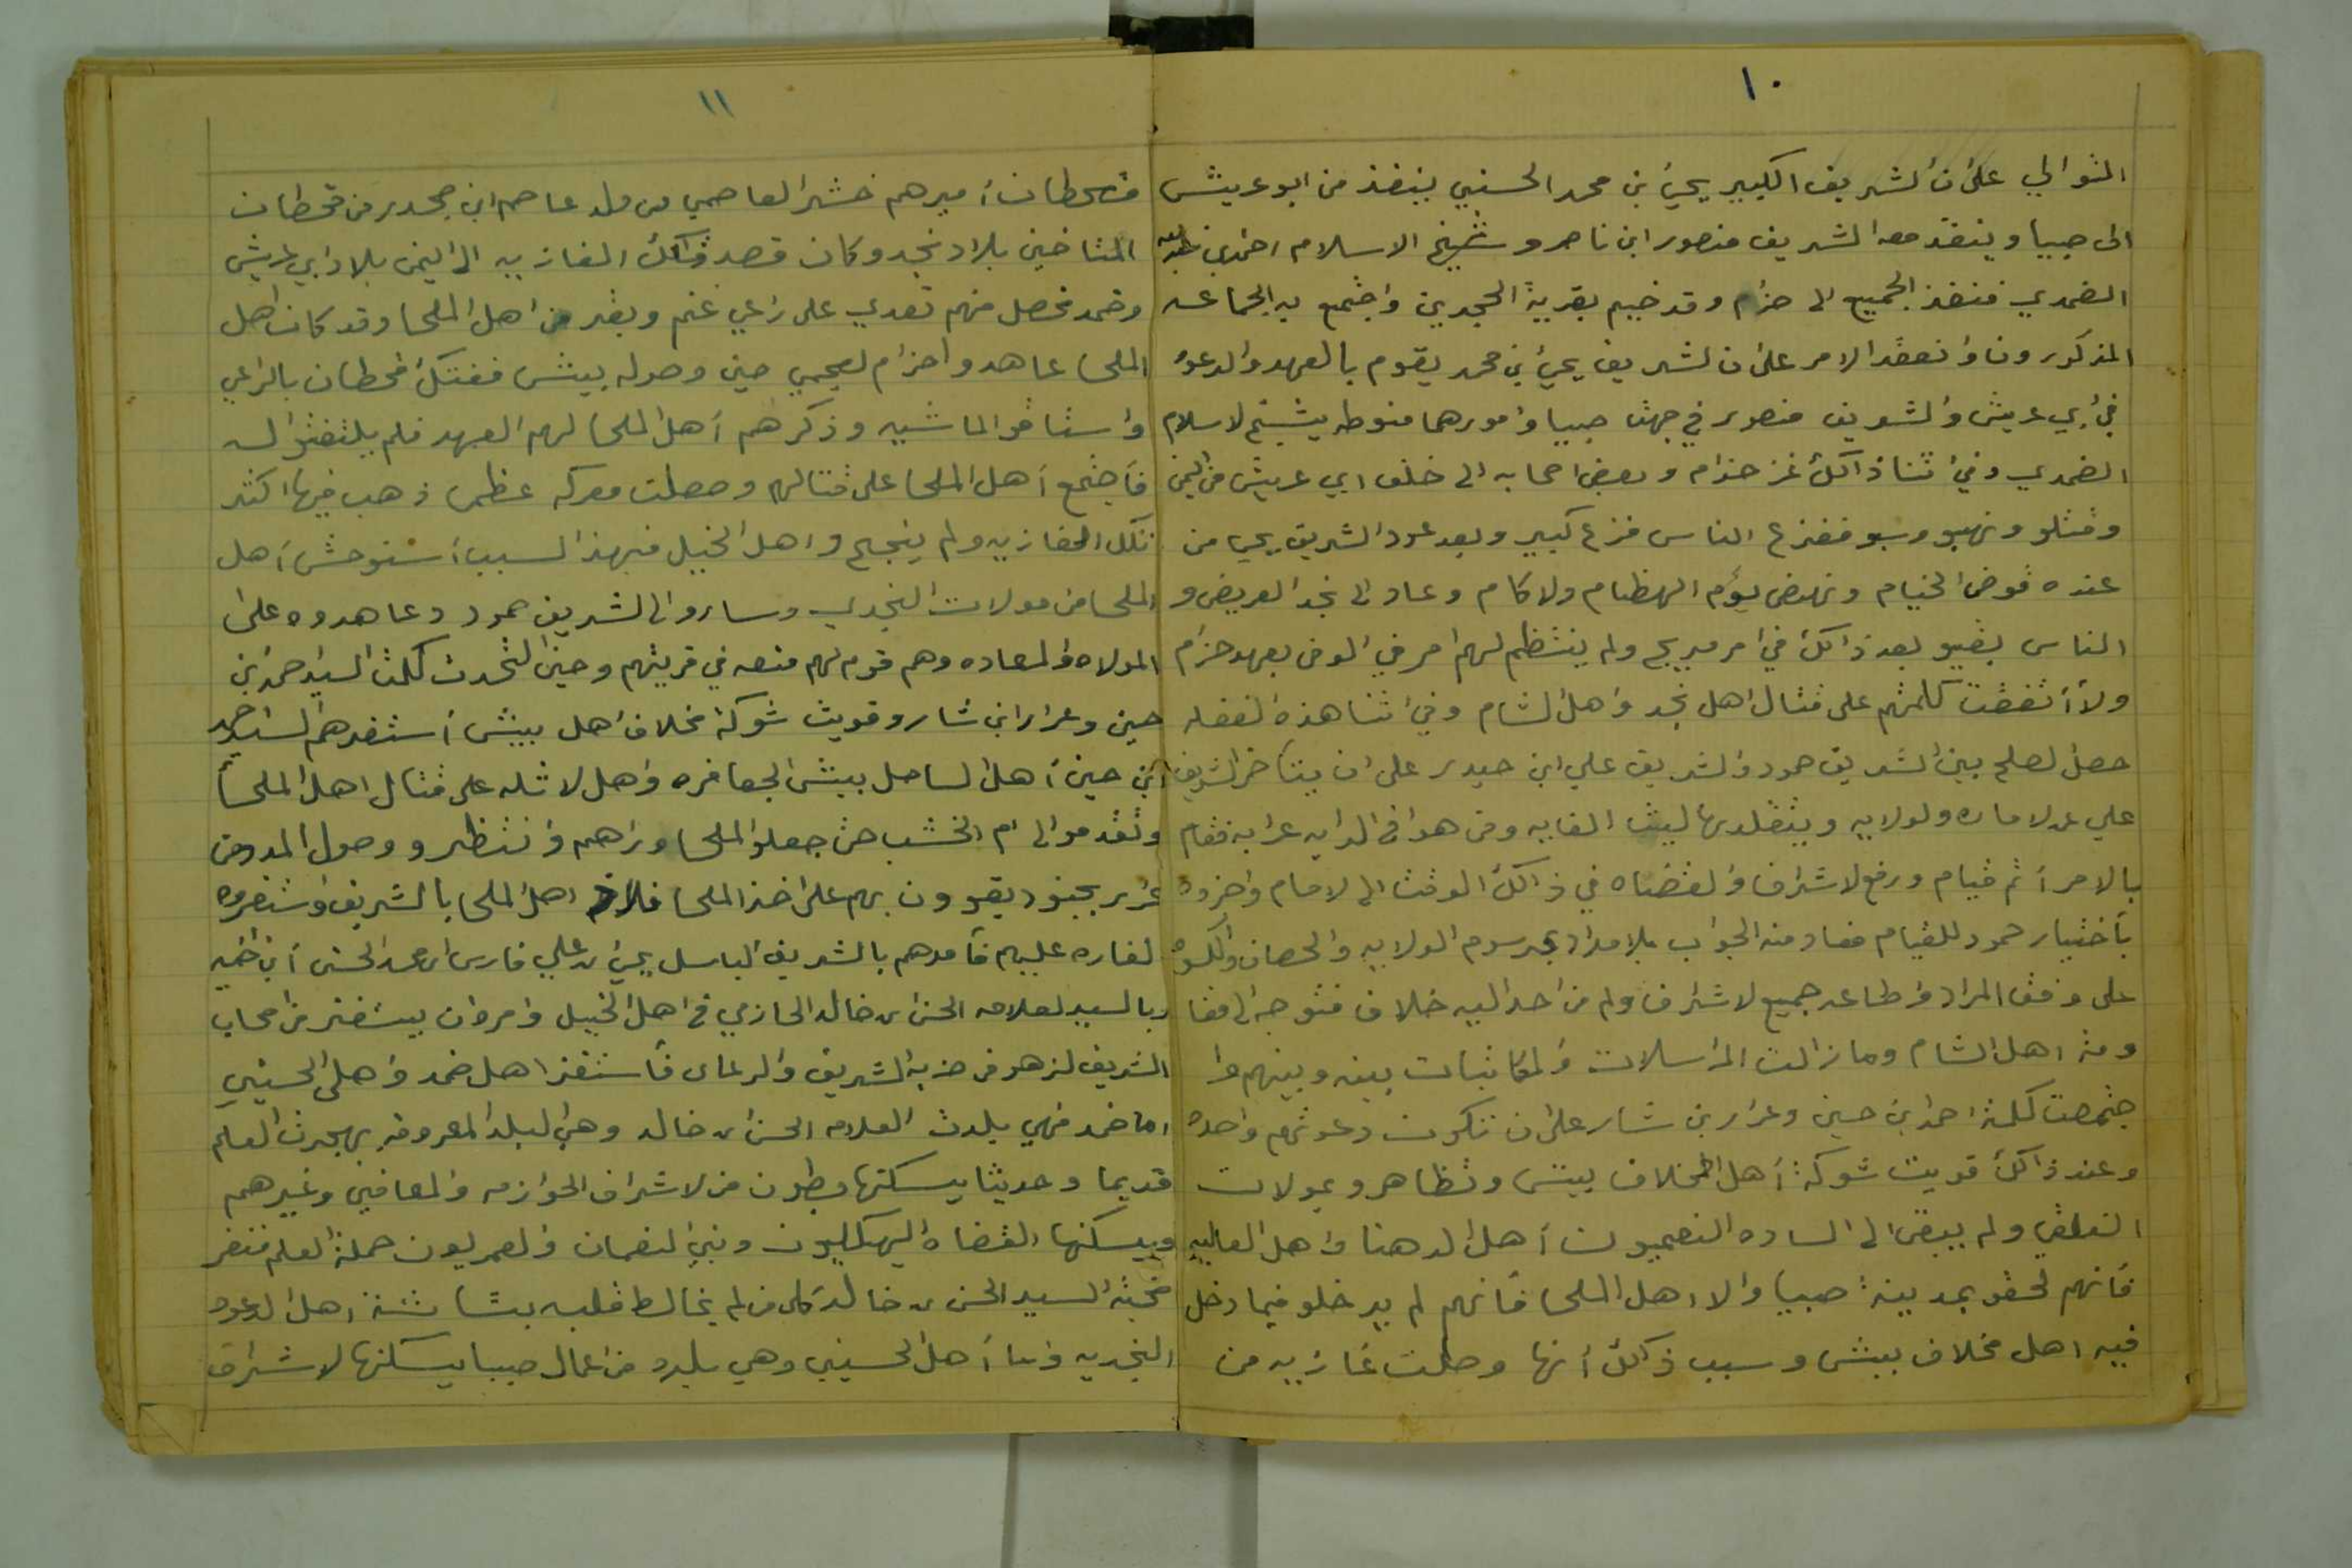 ١٠
الثوالي على ان الشريف الكبير يحيى بن محمد الحسني ينفذ من ابو عريش
الى صبيا وينفذ معه الشريف منصور ابن ناصر وشيخ الاسلام احمد بن عبدالله
الضمدي فنفذ الجميع الى حزام وقد خيم بقرية الحجرين واجتمع به الجماعه
المذكورون وانعقد الامر على ان الشريف يحيى بن محمد يقوم بالعهد والدعوه
في ابي عريش والشريف منصور في جهت صبيا وامورهما منوطه بشيخ لاسلام
الضمدي وفي اثنا ذالك غز حزام وبعض اصحابه الى خلف ابي عريش من اليمن
وقتلو ونهبو وسبو ففزع الناس فزع كبير وبعد عود الشريف يحيى من
عنده قوض الخيام ونهض يؤم الهظام ولاكام وعاد الى نجد العريض و
الناس بقيو بعد ذالك في امر مريج ولم ينتظم لهم امر في الوفى بعهد حزام
ولا أتفقت كلمتهم على قتال اهل نجد واهل الشام وفي اثنا هذه الغفله
حصل لصلح بين الشريف حمود والشريف علي ابن حيدر على ان يتأخر الشريف
علي عن لاماره ولولايه ويتقلدها ليث الغابه ومن هو في الرايه عرابه فقام
بالامر أتم قيام ورفع لاشراف والقضاه في ذالك الوقت الى لامام واخروه
بأختيار حمود للقيام فعاد منه الجواب بلامداد بمرسوم الولايه والحصان والكسوه
على وفق المراد واطاعه جميع لاشراف ولم من احد اليه خلاف فتوجه الى مقا
ومة اهل الشام ومازالت المراسلات والمكاتبات بينه وبينهم وا
جتمعت كلمة احمد ابن حسين وعرار بن شار على ان تكون دعوتهم واحده
وعند ذالك قويت شوكة أهل المخلاف بيش وتظاهرو بمولات
التعلقي ولم يبقى الى الساده النعميون أهل الدهنا واهل العاليه
فأنهم لحقو بمدينة صبيا والا اهل الملحا فأنهم لم يدخلو فيما دخل
فيه اهل مخلاف بيش وسبب ذالك أنها وصلت غازيه من
١١
قحطان أميرهم خشر العاصمي من ولد عاصم ابن جحدر من قحطان
المتاخين بلاد نجد وكان قصد تلك الغازيه الى اليمن بلاد ابي عريش
وضمد فحصل منهم تعدي على راعي غنم وبقر من اهل الملحا وقد كان اهل
الملحا عاهدوا حزام لعجمي حين وصوله بيش ففتكت قحطان بالراعي
واستاقو الماشيه وذكرهم أهل الملحا لهم العهد فلم يلتفتو اله
فأجتمع أهل الملحا على قتالهم وحصلت معركه عظمى ذهب فيها اكثر
تلك الغازيه ولم ينجح و اهل الخيل فبهذا لسبب أستوحش أهل
الملحا من مولات النجدي وساروا الى الشريف حمود وعاهدوه على
المولاه والمعاده وهم قوم لهم منعه في قريتهم وحين اتحدت كلمت السيد احمد بن
حسين وعرار ابن شار وقويت شوكة مخلاف اهل بيش أستفرهم السيد احمد
ابن حسين أهل الساحل بيش الجعافره واهل لاثله على قتال اهل الملحا
وتقدمو الى ام الخشب حتى جعلوا الملحا وراهم وانتظرو وصول المدد من
عرار بجنود يقوون بهم على اخذ الملحا فلاذ اهل الملحا بالشريف واستفروه
لغاره عليهم فأمدهم بالشريف الباسل يحيى بن علي فارس ابن محمد الحسني أبن اخيه
وبالسيد لعلامه الحسن بن خالد الحازمي في اهل الخيل وامر ان يستفز من اصحاب
الشريف لزهو من حزبه الشريف والرعاى فأستفز اهل ضمد واهل الحسيني
اما ضمد فهي بلدت العلامه الحسن بن خالد وهي البلد المعروفه بهجرت العلم
قديما وحديثا يسكنها بطون من لاشراف الحوازمه والمعافين وغيرهم
ويسكنها القضاه البهكليون وبني النعمان والعمريون حملة العلم فنفر
صحبة السيد الحسن بن خالد كل من لم يخالط قلبه بشاشة اهل الدعوه
النجديه واما أهل الحسيني وهي بلده من اعمال صبيا يسكنها لاشراف